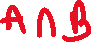 A ∩ B